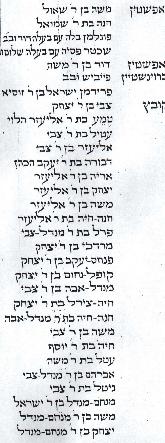 אפשטין משה בן ר' שאול
חנה בת ר' שמואל
פוגלמן בלה עם בעלה דוד ובנם
שכטר פסיה עם בעלה שלום
אפשטיין דוד בן ר' משה
ברוינשטיין פייביש ובנו
פרידמן ישראל בן ר' זוסיא
קוביץ צבי בן ר' יצחק
נחמע בת ר' אליעזר הלוי
עטיל בת ר' צבי
אליעזר בן ר' צבי
דבורה בת ר' יעקב הכהן
אריה בן ר' אליעזר
יצחק בן ר' אליעזר
משה בן ר' אליעזר
חנה-חיה בת ר' אליעזר
פרל בת ר' מנדל-צבי
מרדכי בן ר' יצחק
פנחס-יעקב בן ר' יצחק
קופל-נחום בן ר' יצחק
מנדל-אבה בן ר' צבי
חיה-צירל בת ר' יצחק
חנה-חיה בת ר' מנדל-אבה
משה בן ר' צבי
חיה בת ר' יוסף
עטל בת ר' משה
אברהם בן ר' מנדל-צבי
גיטל בת ר' צבי
מנחם-מנדל בן ר' ישראל
משה בן ר' מנחם-מנדל
יצחק בן ר' מנחם-מנדל